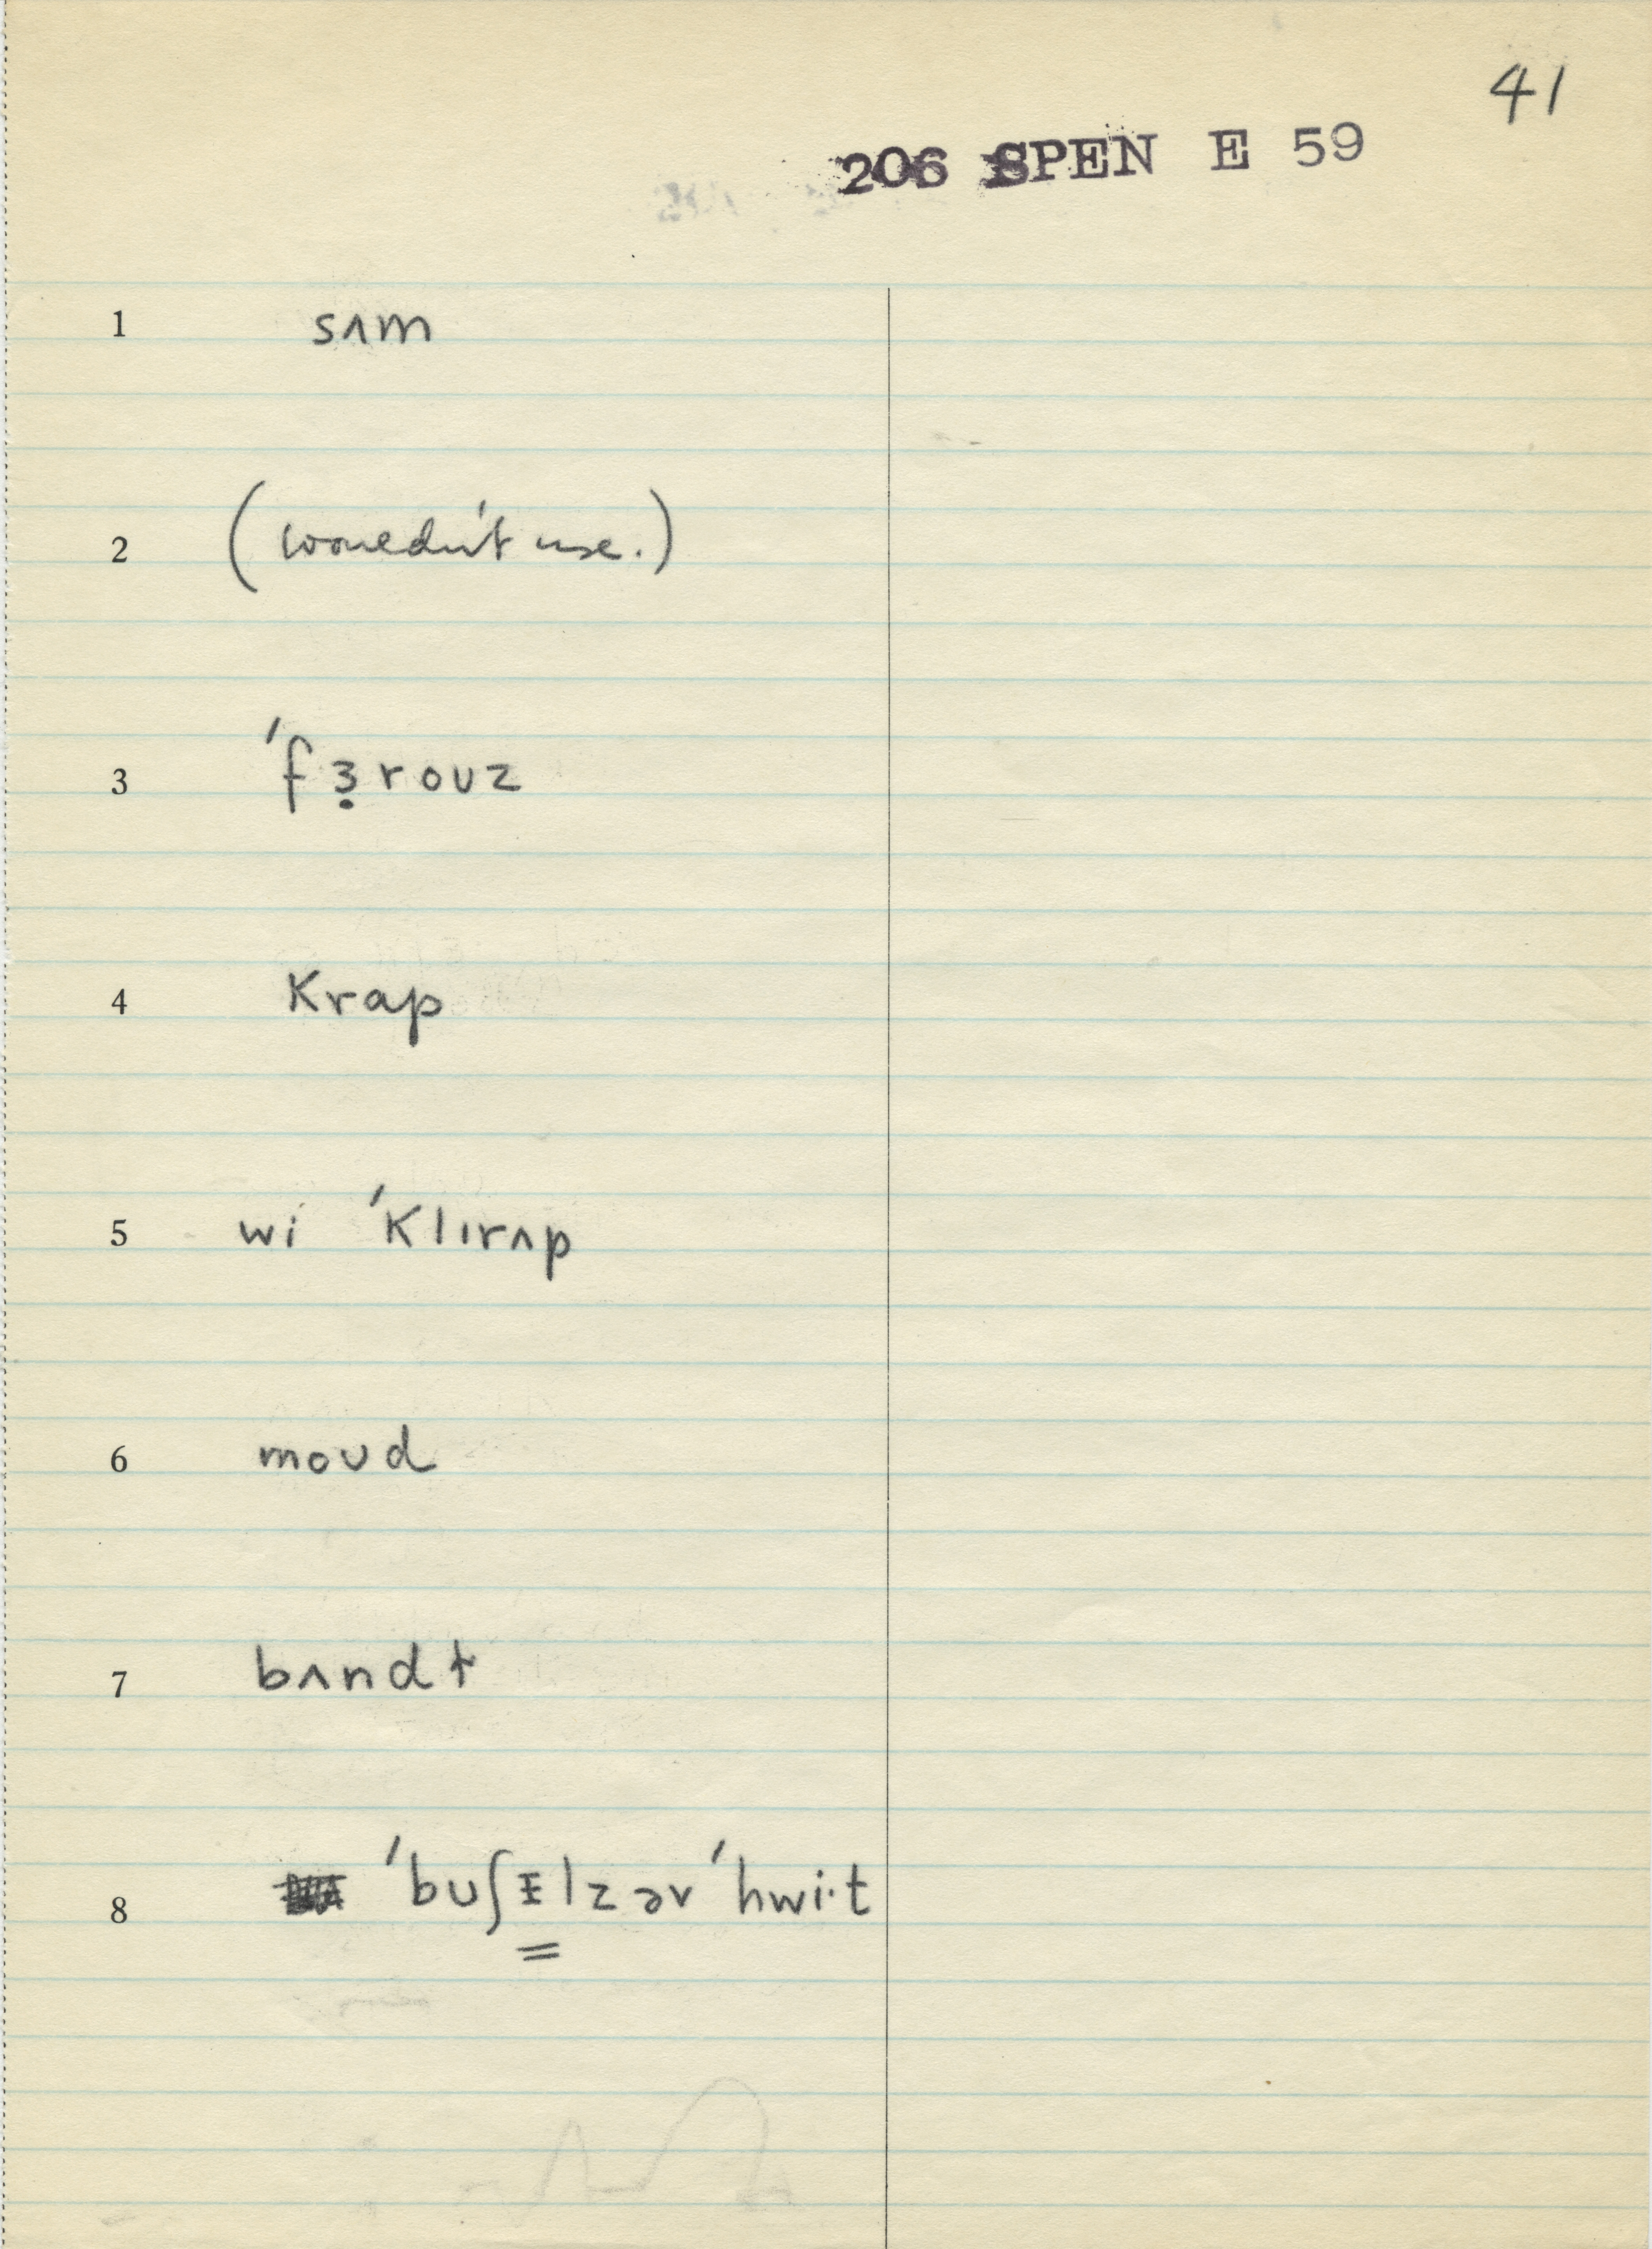 41
206 SPEN E 59
1 sʌm
2 (wouldn't use.)
3 ˈfɜ̣roʊz
4 krap
5 wi ˈklɪrʌp
6 moʊd
7 bʌndt
8 ˈbʊʃɪ̵̳lzəv ˈhwi·t